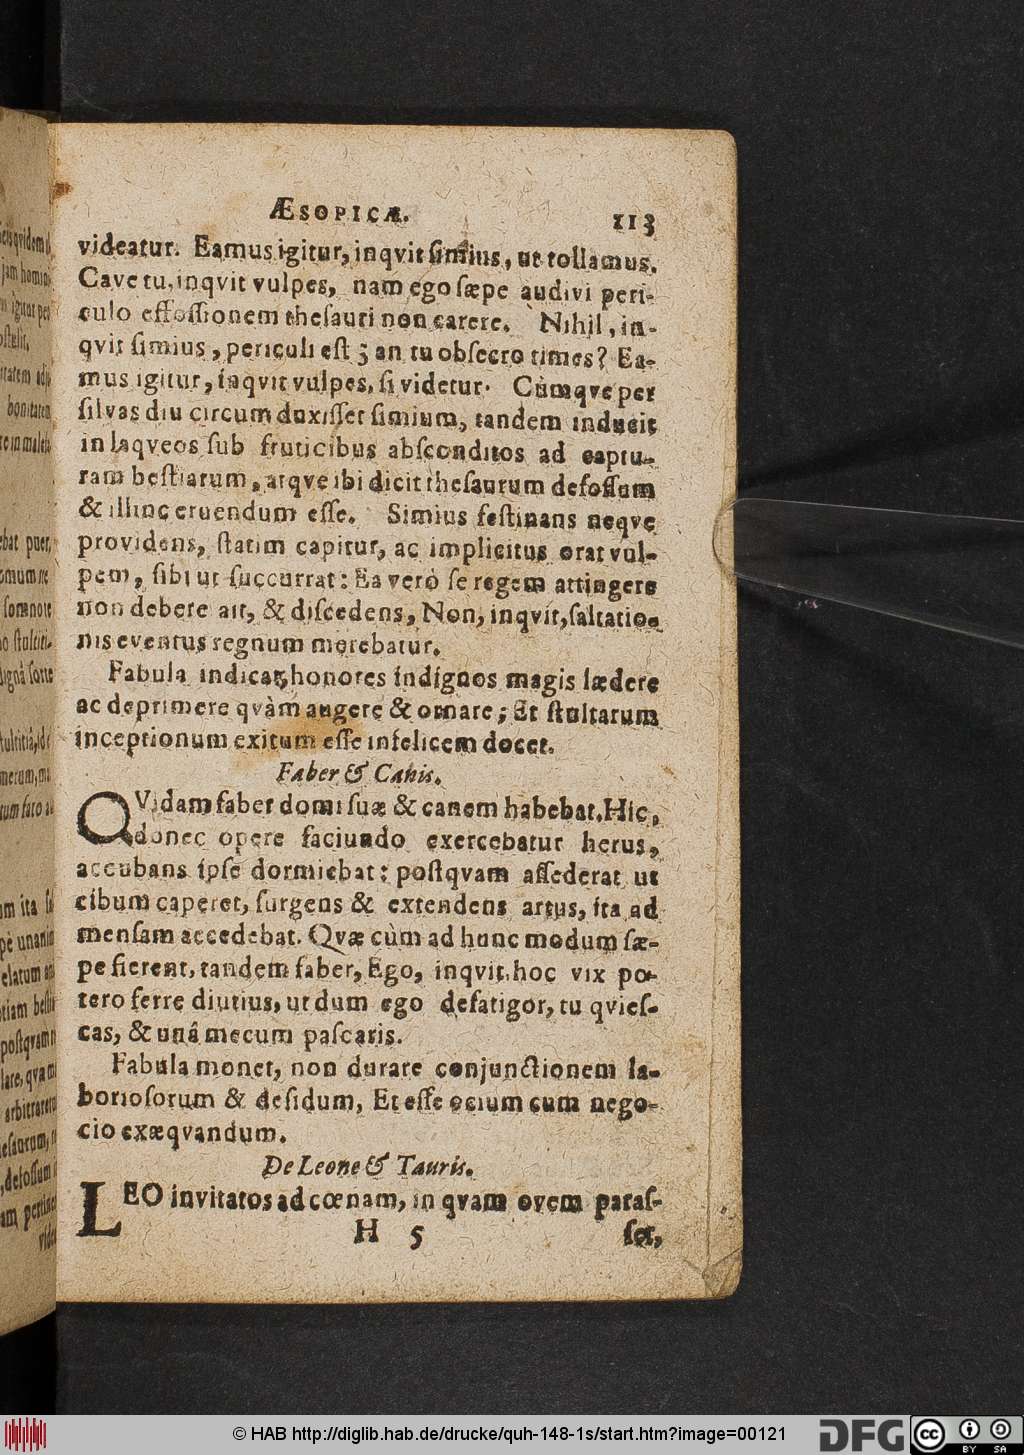 ÆSOPICÆ. 113
videatur. Eamus igitur, inqvit simius, ut tollamus.
Cave tu, inqvit vulpes, nam ego sæpe audivi peri-
culo effossionem thesauri non carere. Nihil, in-
qvit simius, periculi est; an tu obsecro times? Ea-
mus igitur, inqvit vulpes, si videtur. Cùmqve per
silvas diu circumduxisset simium, tandem inducit
in laqveos sub fruticibus absconditos ad captu-
ram bestiarum, atqve ibi dicit thesaurum defossum
& illinc eruendum esse. Simius festinans neqve
providens, statim capitur, ac implicitus orat vul-
pem, sibi ut succurrat: Ea verò se regem attingere
non debere ait, & discedens, Non, inqvit, saltatio-
nis eventus regnum merebatur.
Fabula indicat, honores indignos magis lædere
ac deprimere qvàm augere & ornare; Et stultarum
inceptionum exitum esse infelicem docet.
Faber & Canis.
QVidam faber domi suæ & canem habebat. Hic,
donec opere faciundo exercebatur herus,
accubans ipse dormiebat: postqvam assederat ut
cibum caperet, surgens & extendens artus, ita ad
mensam accedebat. Qvæ cùm ad hunc modum sæ-
pe fierent, tandem faber, Ego, inqvit, hoc vix po-
tero ferre diutius, ut dum ego defatigor, tu qvies-
cas, & unâ mecum pascaris.
Fabula monet, non durare conjunctionem la-
boriosorum & desidum, Et esse ocium cum nego-
cio exæqvandum.
De Leone & Tauris.
LEO invitatos ad cœnam, in qvam ovem paras-
H 5 set,
© HAB http://diglib.hab.de/drucke/quh-148-1s/start.htm?image=00121
DFG
cc
BY SA